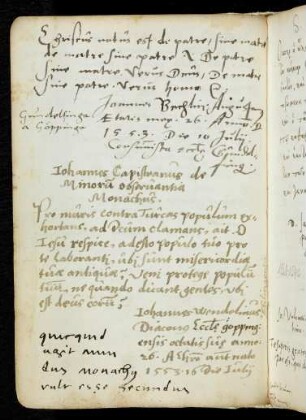 Christus natus est de patre, sine matre
de matre sine patre. De patre
sine matre Verus Deus, De matre
sine patre Verus homo
Ioannes
Ætatis meæ. 26. Anno D
1553. Die 10 Iulij
Gundelfinga
a Goppinge
Iohannes Capistranus de
Minorū observantia
Monachus.
Pro muris contra Turcas populum ex-
hortans, ad Deum clamans, ait. O
Iesu respice, adesto populo tuo pro
te laboranti, ubi sunt misericordiæ
tuæ antiquæ? Veni protege populū
tuū, ne quando dicant gentes, ubi
est deus eorū?
Iohannes
Diacon9 Eccle. gopping-
ensis ætatis suæ anno
26. A Chro aut nato
1553 16 Die Iulij
quicquid
agit mun
dus monachus
vult esse secundus